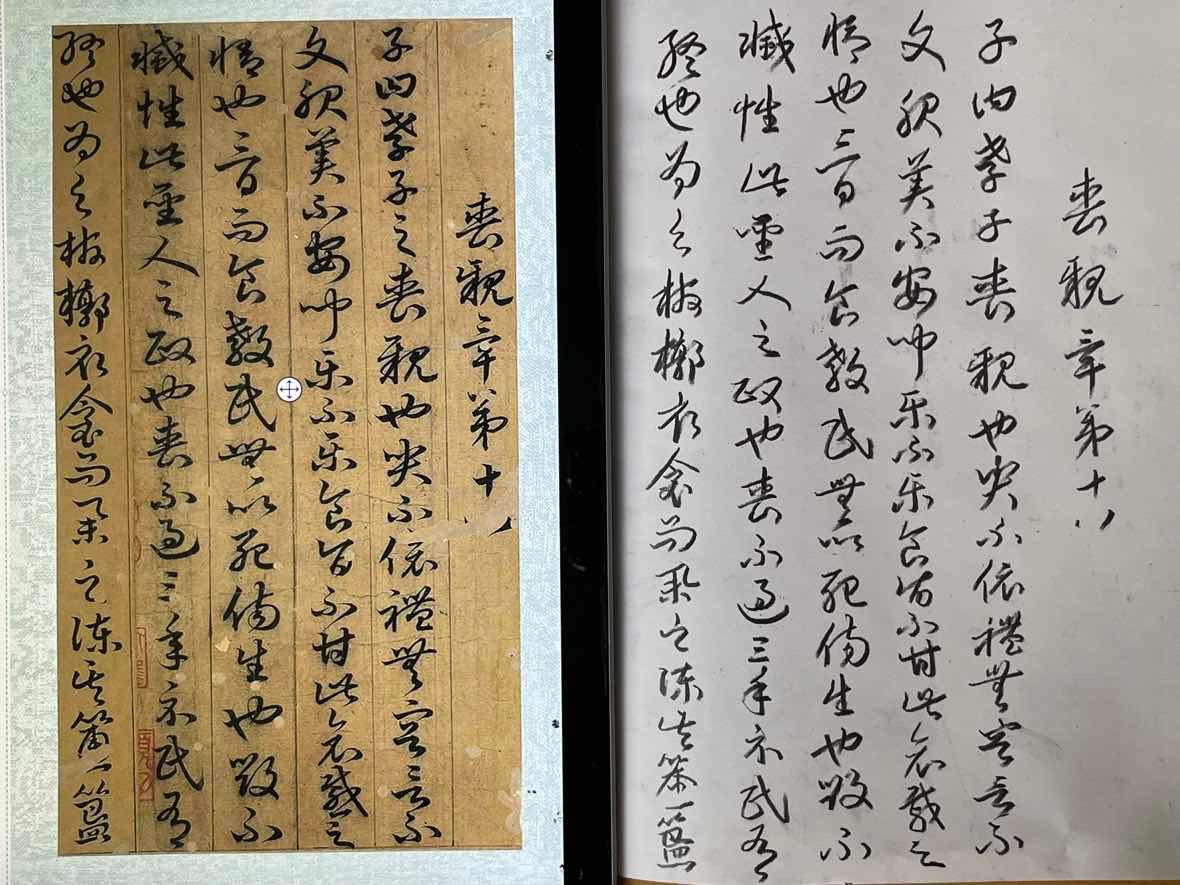 喪親章第十八
子曰孝子之喪親也哭不依禮無容言不
文服美不安聞樂不樂食旨不甘此哀慼之
情也三日而食教民無以死傷生也毀不
滅性此聖人之政也喪不過三年示民有
終也為之棺槨衣衾而舉之陳其簠簋
喪親章第十八
子曰孝子喪親也哭不依禮無容言不
文服美不安聞樂不樂食旨不甘此哀慼之
情也三日而食教民無以死傷生也毀不
滅性此聖人之政也喪不過三年示民有
終也為之棺槨衣衾而舉之陳其簠簋